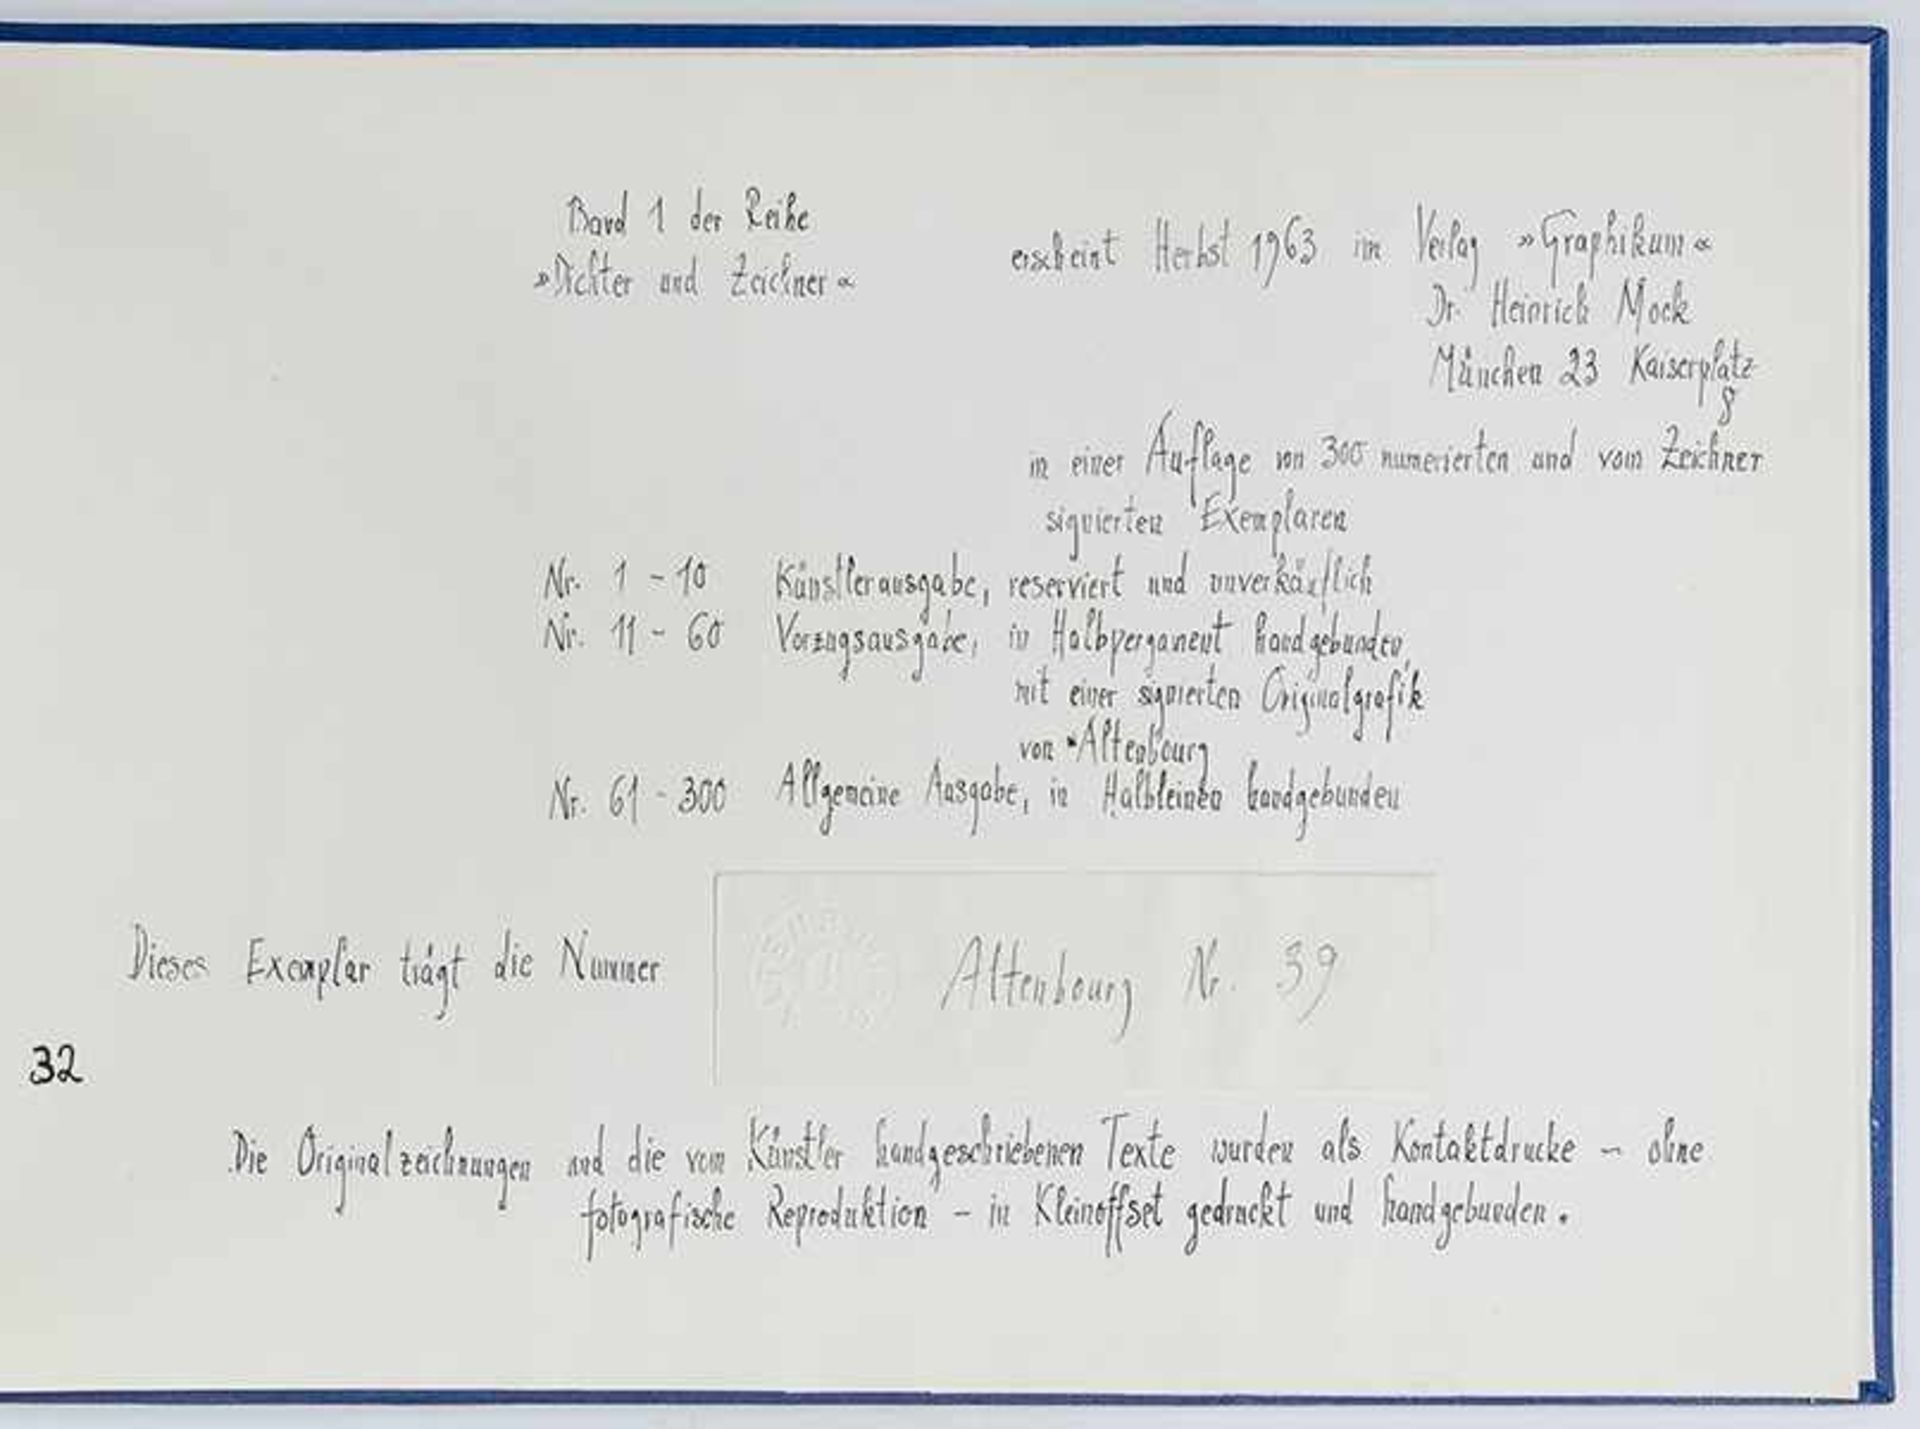 Band 1 der Reihe
»Dichter und Zeichner«
erscheint Herbst 1963 im Verlag »Graphikum«
Dr. Heinrich Mock
München 23 Kaiserplatz
8
in einer Auflage von 300 numerierten und vom Zeichner
signierten Exemplaren
Nr. 1 - 10 Künstlerausgabe, reserviert und unverkäuflich
Nr. 11 - 60 Vorzugsausgabe, in Halbpergament handgebunden,
mit einer signierten Originalgrafik
von Altenbourg
Nr. 61 - 300 Allgemeine Ausgabe, in Halbleinen handgebunden
Dieses Exemplar trägt die Nummer
Altenbourg Nr. 39
32
Die Originalzeichnungen und die vom Künstler handgeschriebenen Texte wurden als Kontaktdrucke – ohne
fotografische Reproduktion – in Kleinoffset gedruckt und handgebunden.